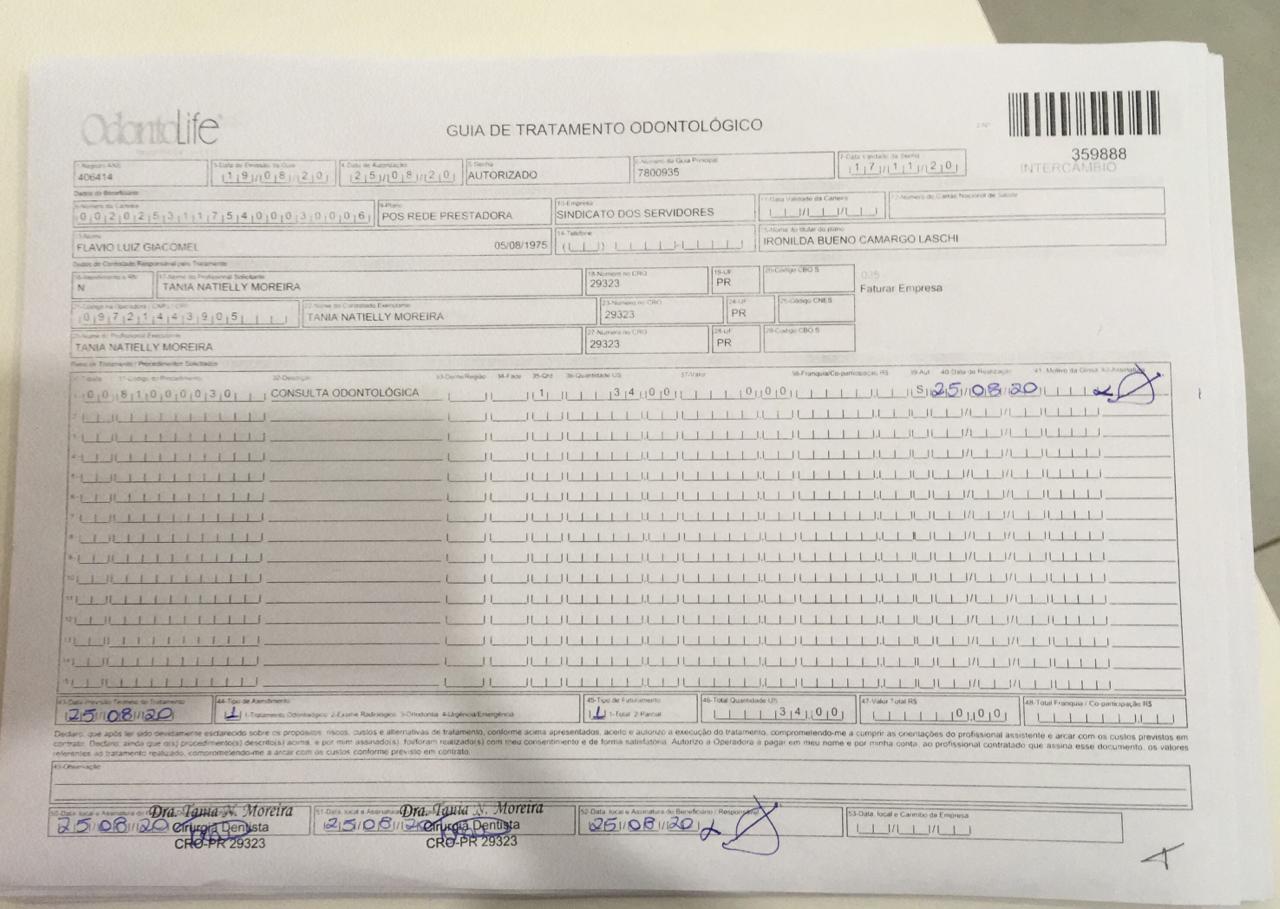 OdontoLife
GUIA DE TRATAMENTO ODONTOLÓGICO
2-Nº
359888
INTERCÂMBIO
1-Registro ANS
406414
3-Data de Emissão da Guia
19/08/20
4-Data de Autorização
25/08/20
5-Senha
AUTORIZADO
6-Número da Guia Principal
7800935
7-Data Validade da Senha
17/11/20
Dados do Beneficiário
8-Número da Carteira
00202531175400030006
9-Plano
POS REDE PRESTADORA
10-Empresa
SINDICATO DOS SERVIDORES
11-Data Validade da Carteira
12-Número do Cartão Nacional de Saúde
13-Nome
FLAVIO LUIZ GIACOMEL 05/08/1975
14-Telefone
15-Nome do titular do plano
IRONILDA BUENO CAMARGO LASCHI
Dados do Contratado Responsável pelo Tratamento
16-Atendimento a RN
N
17-Nome do Profissional Solicitante
TANIA NATIELLY MOREIRA
18-Número no CRO
29323
19-UF
PR
20-Código CBO S
025
Faturar Empresa
21-Código na Operadora / CNPJ / CPF
09721443905
22-Nome do Contratado Executante
TANIA NATIELLY MOREIRA
23-Número no CRO
29323
24-UF
PR
25-Código CNES
26-Nome do Profissional Executante
TANIA NATIELLY MOREIRA
27-Número no CRO
29323
28-UF
PR
29-Código CBO S
Plano de Tratamento / Procedimentos Solicitados
30-Tabela 31-Código do Procedimento 32-Descrição 33-Dente/Região 34-Face 35-Qtd 36-Quantidade US 37-Valor 38-Franquia/Co-participação R$ 39-Aut 40-Data de Realização 41- Motivo da Glosa 42-Assinatura
1- 00 81000030 CONSULTA ODONTOLÓGICA 1 34,00 0,00 S 25/08/20
2-
3-
4-
5-
6-
7-
8-
9-
10-
11-
12-
13-
14-
15-
43-Data Previsão Término do Tratamento
25/08/20
44-Tipo de Atendimento
1 1-Tratamento Odontológico 2-Exame Radiológico 3-Ortodontia 4-Urgência/Emergência
45-Tipo de Faturamento
1 1-Total 2-Parcial
46-Total Quantidade US
34,00
47-Valor Total R$
0,00
48-Total Franquia / Co-participação R$
Declaro, que após ter sido devidamente esclarecido sobre os propósitos, riscos, custos e alternativas de tratamento, conforme acima apresentados, aceito e autorizo a execução do tratamento, comprometendo-me a cumprir as orientações do profissional assistente e arcar com os custos previstos em
contrato. Declaro, ainda que o(s) procedimento(s) descrito(s) acima, e por mim assinado(s), foi/foram realizado(s) com meu consentimento e de forma satisfatória. Autorizo a Operadora a pagar em meu nome e por minha conta, ao profissional contratado que assina esse documento, os valores
referentes ao tratamento realizado, comprometendo-me a arcar com os custos conforme previsto em contrato.
49-Observação
50-Data, local e Assinatura do
25/08/20
Dra. Tania N. Moreira
Cirurgiã Dentista
CRO-PR 29323
51-Data, local e Assinatura
25/08/20
Dra. Tania N. Moreira
Cirurgiã Dentista
CRO-PR 29323
52-Data, local e Assinatura do Beneficiário / Responsável
25/08/20
53-Data, local e Carimbo da Empresa